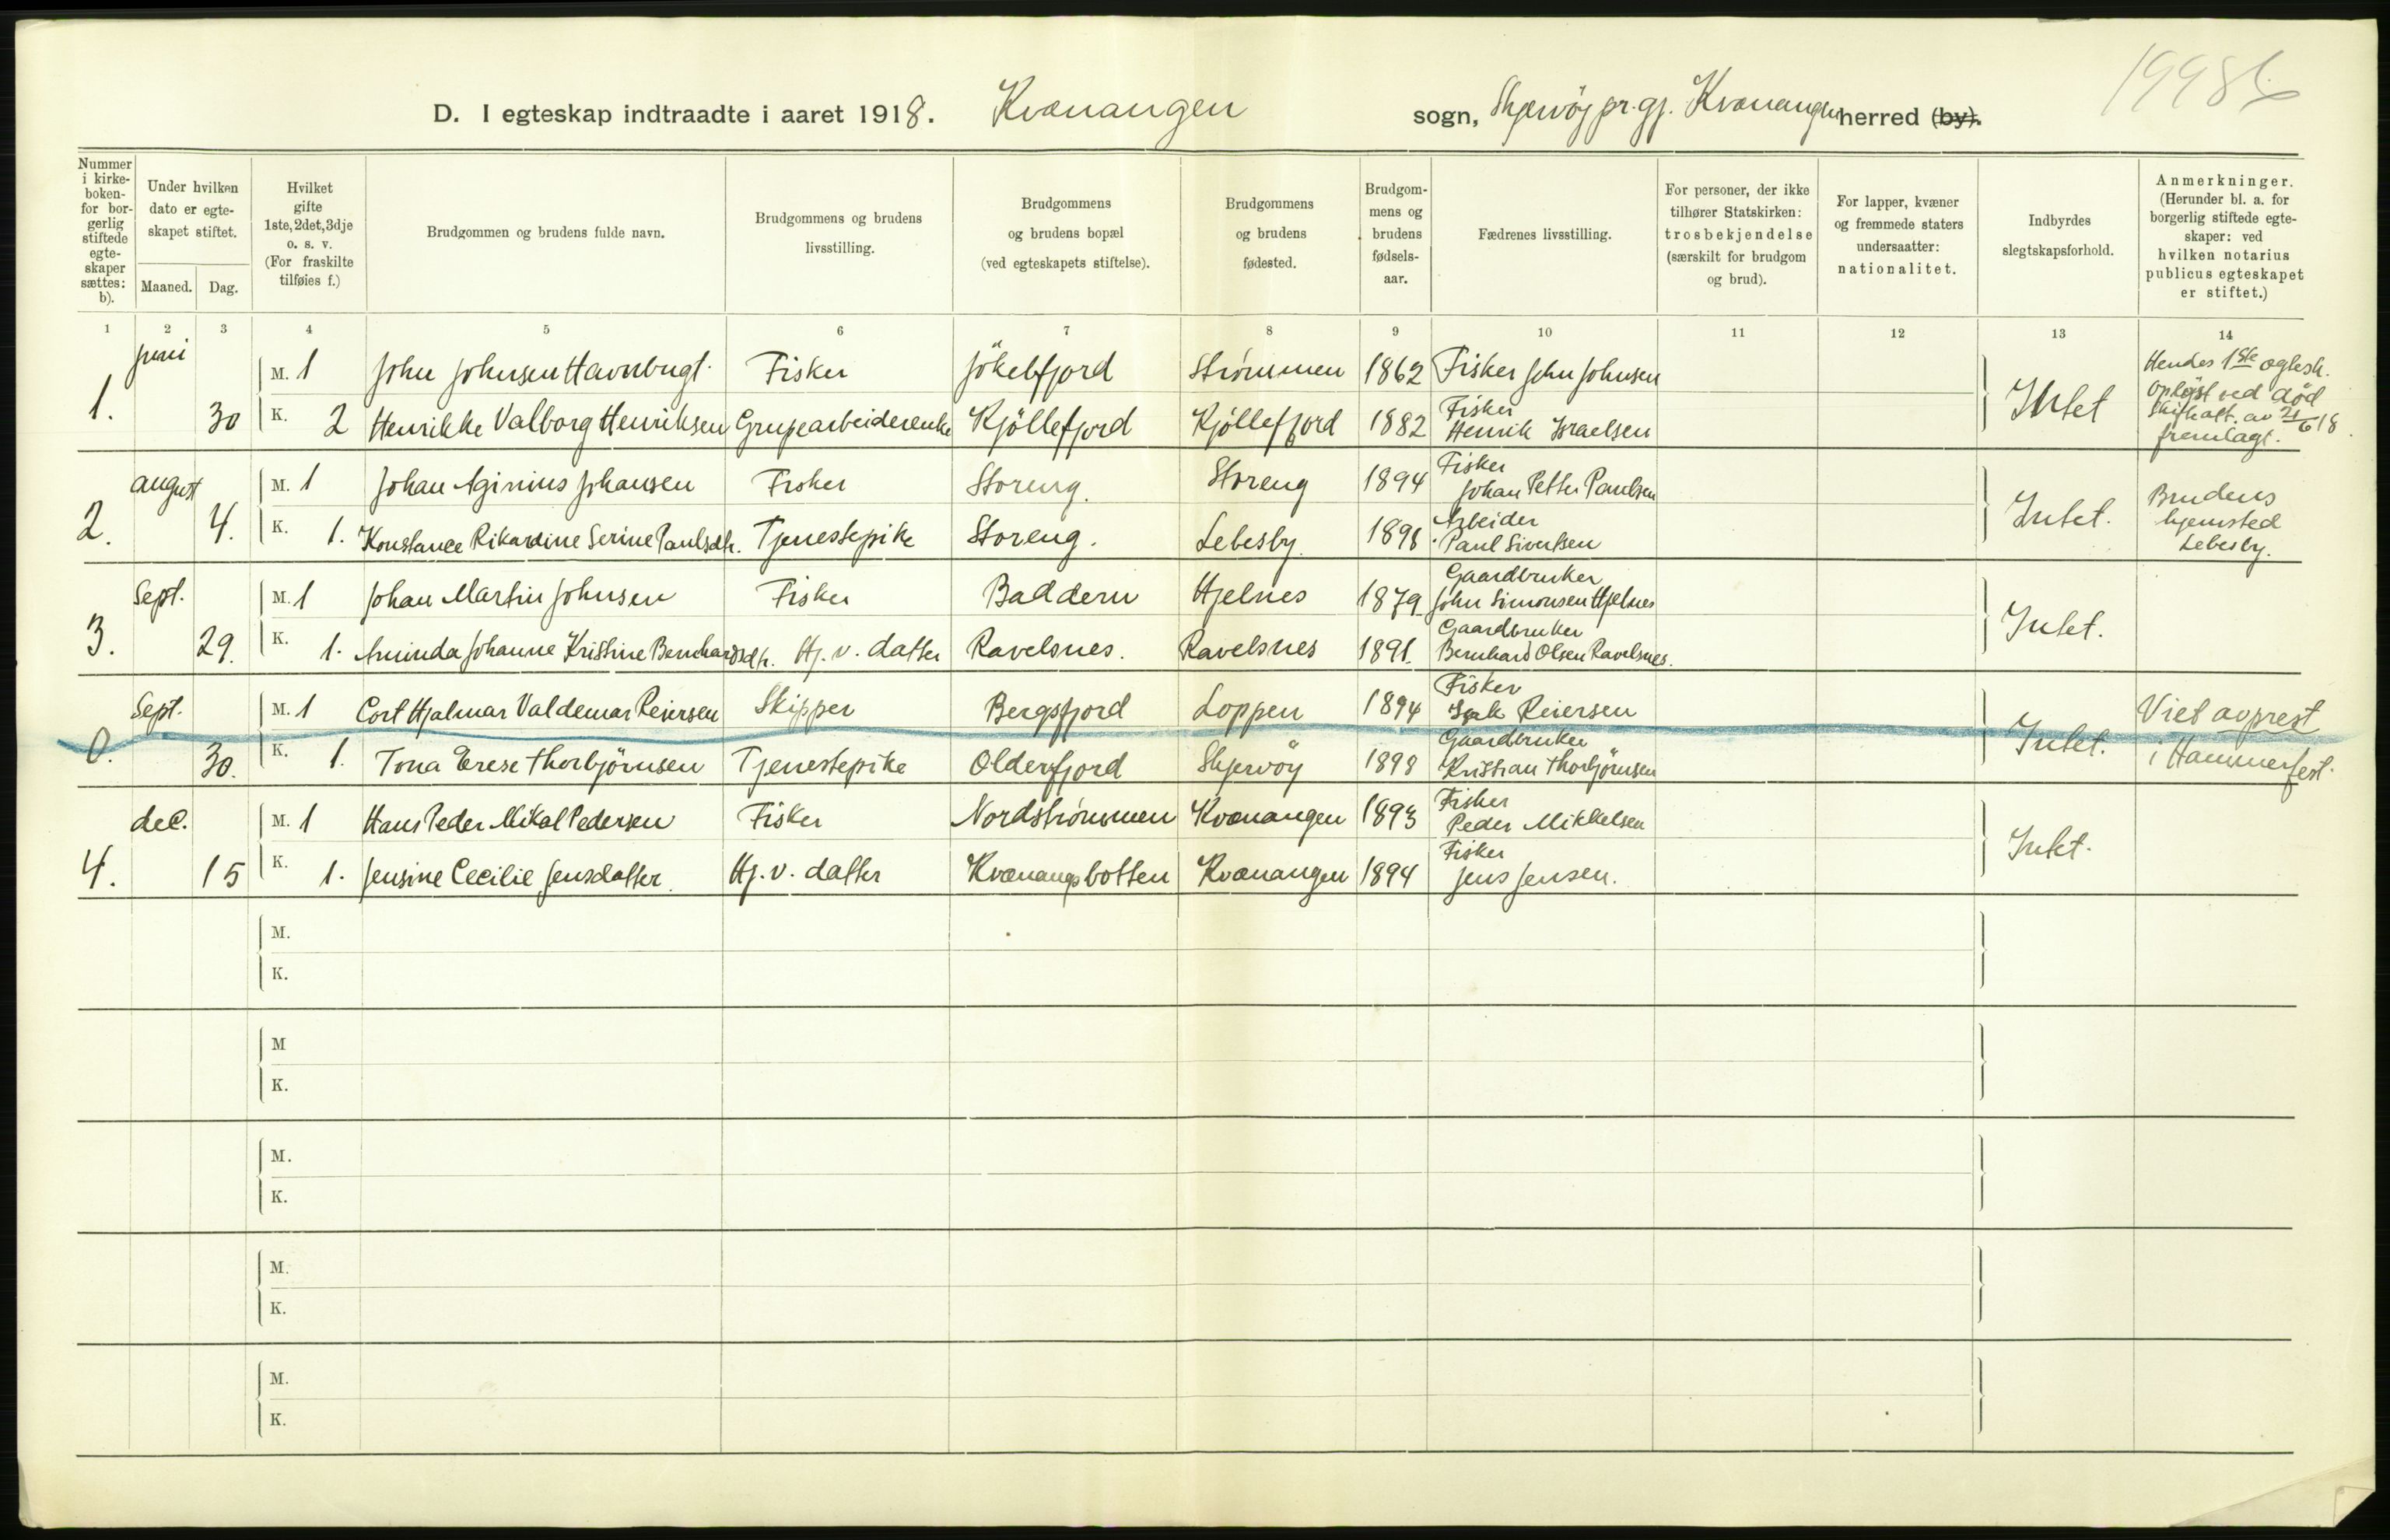 19986
D. I egteskap indtraadte i aaret 1918. Kvænangen sogn, Skjervöy pr.gj. Kvænangen herred (by).
Nummer i kirke-boken for bor-gerlig stiftede egte-skaper sættes: b).
Under hvilken dato er egte-skapet stiftet.
Maaned. Dag.
Hvilket gifte 1ste, 2det, 3dje o. s. v. (For fraskilte tilføies f.)
Brudgommen og brudens fulde navn.
Brudgommens og brudens livsstilling.
Brudgommens og brudens bopæl (ved egteskapets stiftelse).
Brudgommens og brudens fødested.
Brudgom-mens og brudens fødsels-aar.
Fædrenes livsstilling.
For personer, der ikke tilhører Statskirken: trosbekjendelse (særskilt for brudgom og brud).
For lapper, kvæner og fremmede staters undersaatter: nationalitet.
Indbyrdes slegtskapsforhold.
Anmerkninger. (Herunder bl. a. for borgerlig stiftede egte-skaper: ved hvilken notarius publicus egteskapet er stiftet.)
1 2 3 4 5 6 7 8 9 10 11 12 13 14
1. juni 30
M. 1 John Johnsen Havnbugt. Fisker Jökelfjord Strömmen 1862 Fisker John Johnsen
K. 2 Henrikke Valborg Henriksen Grupearbeiderenke Kjöllefjord Kjöllefjord 1882 Fisker Henrik Israelsen
Intet
Hendes 1ste egtesk.
opløst ved död
Skifteatt. av 21/6 18
fremlagt.
2. august 4.
M. 1 Johan Aginius Johansen Fisker Storeng. Storeng 1894 Fisker Johan Petter Paulsen
K. 1. Konstance Rikardine Serine Paulsdtr. Tjenestepike Storeng. Lebesby. 1898 Arbeider Paul Sivertsen
Intet.
Brudens
hjemsted
Lebesby.
3. Sept. 29.
M. 1 Johan Martin Johnsen Fisker Baddern Hjelnes 1879 Gaardbruker John Simonsen Hjelnes
K. 1. Aminda Johanne Kristine Bernhardsdtr. Hj. v. datter Ravelsnes. Ravelsnes 1891. Gaardbruker Bernhard Olsen Ravelsnes.
Intet.
0. Sept. 30.
M. 1 Cort Hjalmar Valdemar Reiersen Skipper Bergsfjord Loppen 1894 Fisker Isak Reiersen
K. 1. Tona Erese Thorbjörnsen Tjenestepike Olderfjord Skjervöy 1898 Gaardbruker Kristian Thorbjörnsen
Intet.
Viet av prest
i Hammerfest.
4. dec. 15
M. 1 Hans Peder Mikal Pedersen Fisker Nordströmmen Kvænangen 1893 Fisker Peder Mikkelsen
K. 1. Jensine Cecilie Jensdatter. Hj. v. datter Kvænangsbotten Kvænangen 1894 Fisker Jens Jensen.
Intet.
M.
K.
M
K.
M.
K.
M.
K.
M.
K.